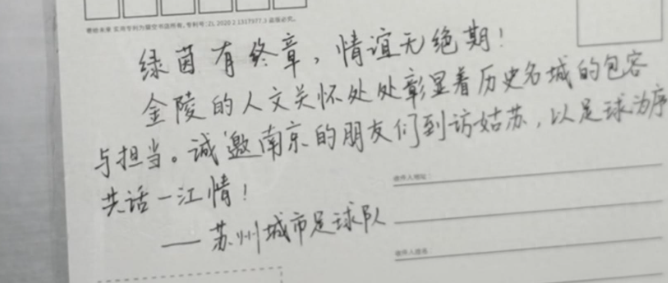 绿茵有终章，情谊无绝期！
金陵的人文关怀处处彰显着历史名城的包容
与担当。诚邀南京的朋友们到访姑苏，以足球为序
共话一江情！
——苏州城市足球队
收件人地址：
收件人姓名：